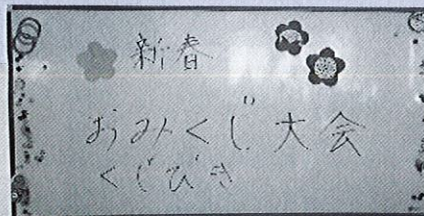 新春
おみくじ大会
くじびき